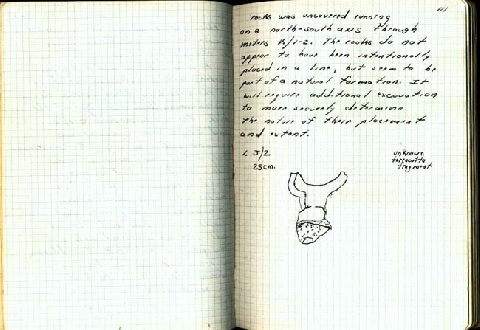 rocks was uncovered running
on a north-south axis through
meters
The rocks do not
appear to have been intentionally
placed in a line, but seem to be
part of a natural formation. It
will require additional excavation
to more securely determine
the nature of their placement
and extent.
L I/2
25cm.
unknown
terracotta
fragment